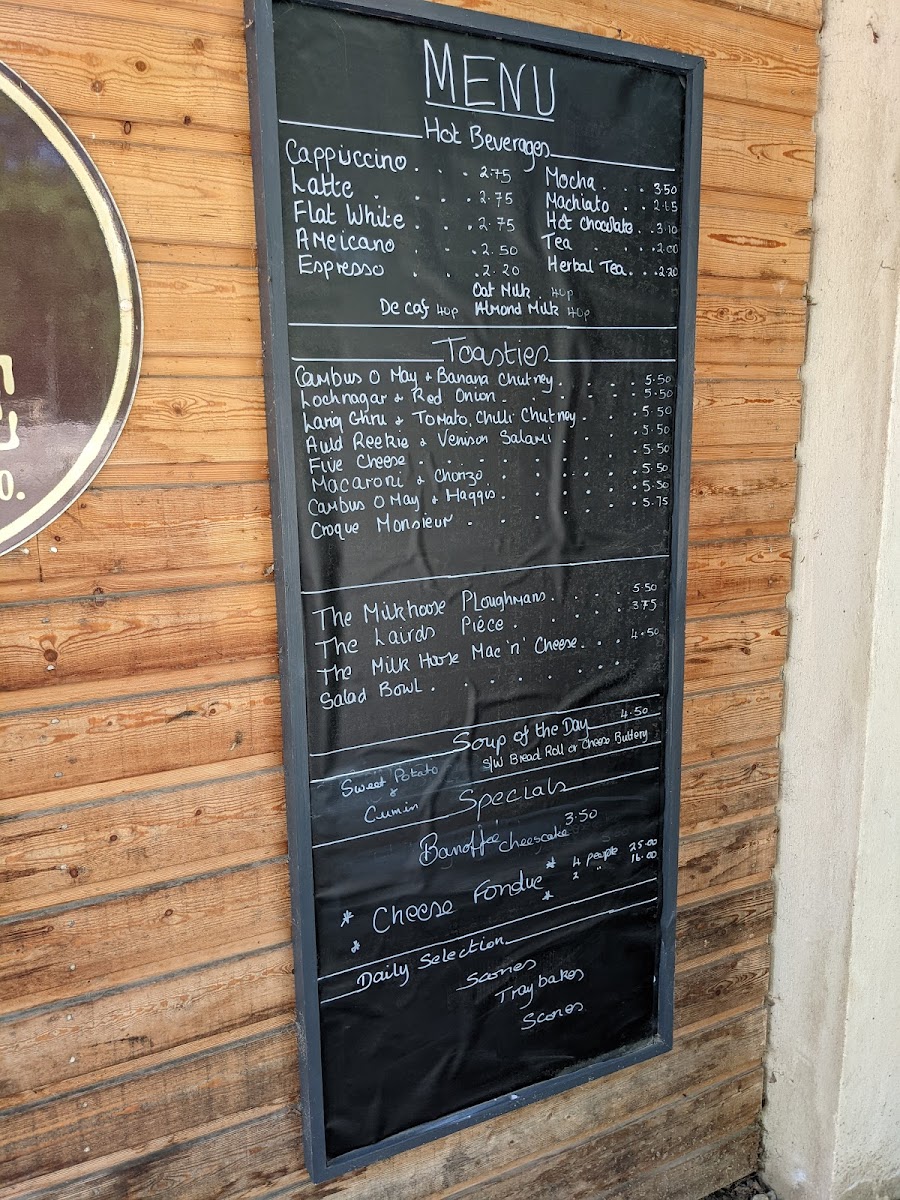 MENU
Hot Beverages
Cappuccino . . . 2.75
Latte . . . 2.75
Flat White . . . 2.75
Ameicano . . 2.50
Espresso . . . 2.20
Mocha . . . 3.50
Machiato . . 2.15
Hot Chocolate . . 3.10
Tea . . . 2.00
Herbal Tea . . . 2.20
Oat Milk 40p
De caf 40p Almond Milk 40p
Toasties
Cambus O May & Banana Chutney . . . . 5.50
Lochnagar & Red Onion . . . . . 5.50
Larig Ghru & Tomato, Chilli Chutney . . . 5.50
Auld Reekie & Venison Salami . . . . 5.50
Five Cheese . . . . . . . 5.50
Macaroni & Chorizo . . . . . 5.50
Cambus O May & Haggis . . . . . 5.50
Croque Monsieur . . . . . . 5.75
The Milkhoose Ploughmans . . . . 5.50
The Lairds Piéce . . . . . 3.75
The Milk Hoose Mac 'n' Cheese . . . 4.50
Salad Bowl . . . . . . .
Soup of the Day 4.50
S/W Bread Roll or Cheese Buttery
Sweet Potato
&
Cumin
Specials
Banoffee Cheescake 3.50
* Cheese Fondue * 4 people 25.00
* * 2 " 16.00
Daily Selection
Scones
Traybakes
Scones
O.